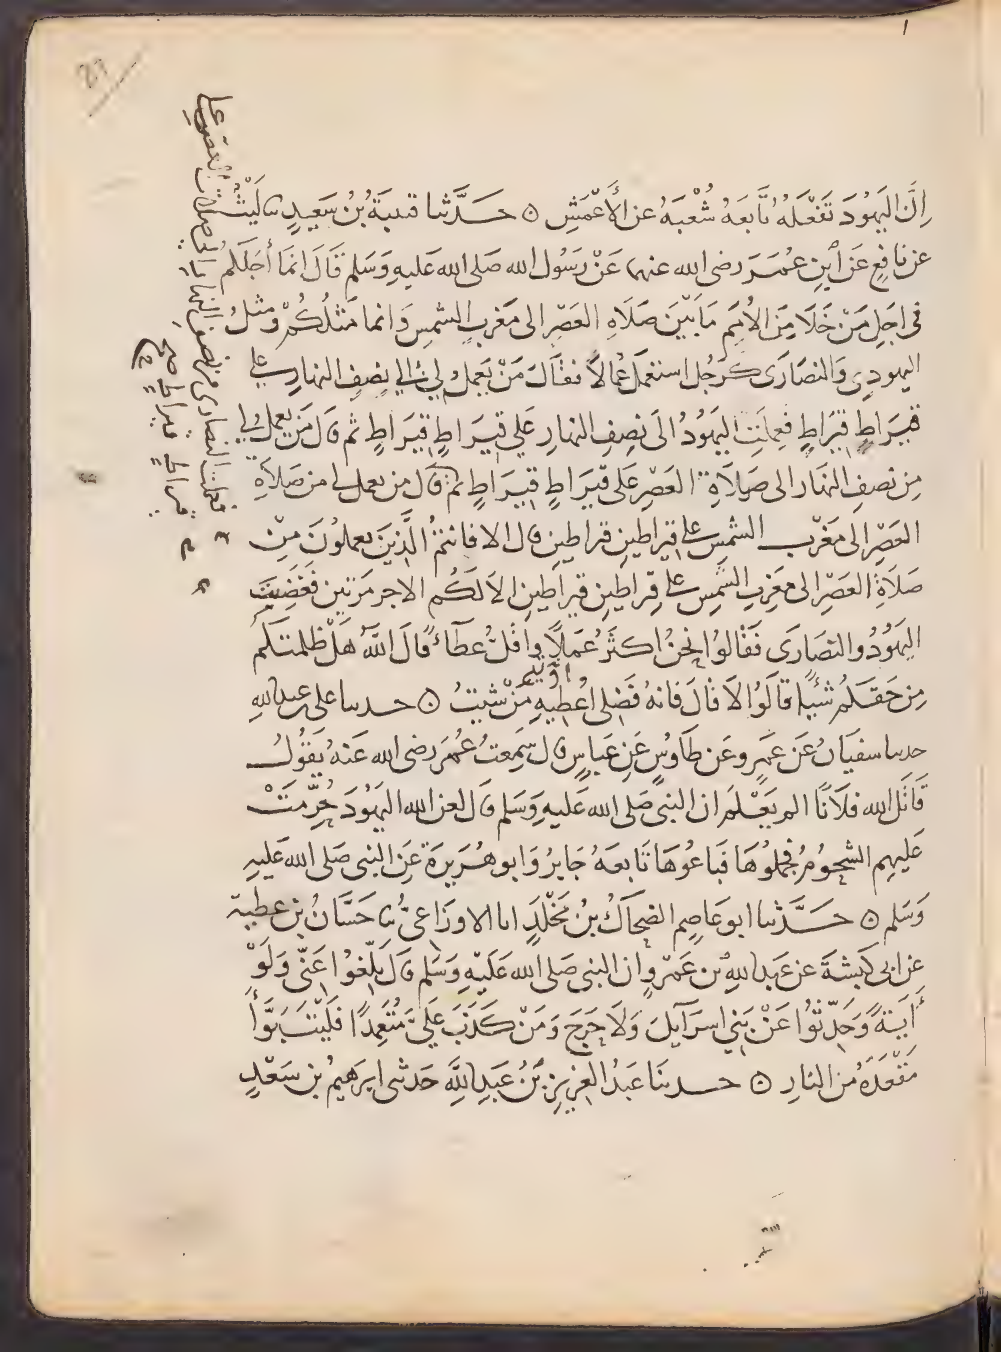 اِنَّ اليَهُودَ تَفْعَلُهُ تَابَعَهُ شُعْبَةُ عَنِ الأَعْمَشِ ۞ حَدَّثَنا قتيبَةُ بْنُ سَعِيدٍ نا لَيْثٌ
عن نافِعٍ عَنِ ابْنِ عُمَرَ رضى الله عنهما عَنْ رَسُولِ الله صَلى الله عَلَيهِ وَسَلم قَالَ انما أجَلُكُمْ
فى اجَلِ مَنْ خَلَا مِنَ الأُمَمِ مَا بَيْنَ صَلَاةِ العَصْرِ الى مَغْرِبِ الشَّمْسِ وَانما مَثَلُكُمْ وَمثلُ
اليهودِ وَالنصَارَى كَرَجُلٍ استعمَلَ عُمالًا فقالَ مَنْ يَعملُ لِي الى نِصفِ النهار على
قيرَاطٍ قيرَاطٍ فعملَتِ اليَهُودُ الى نِصفِ النهارِ عَلى قيرَاطٍ قِيرَاطٍ ثم قال مَن يعملُ لِي
مِن نصفِ النهَار الى صَلَاةِ العَصْرِ على قِيرَاطٍ قيرَاطٍ ثم قال من يعمل لى من صَلَاةِ
العَصْرِ الى مَغْرِبِ الشمسِ على قيرَاطينِ قيراطينِ قال الا فانتمُ الَّذِينَ يعملُونَ مِنْ
صَلَاةِ العَصْرِ الى مغرِبِ الشَّمسِ على قِيرَاطينِ قيراطينِ الا لَكُم الاجر مَرَّتينِ فَغَضِبَتِ
اليَهُودُ والنصَارَى فَقَالُوا نحنُ اكثَرُ عَمَلًا وَاقَلُّ عطَآءً قالَ اللَّهُ هَلْ ظلمتكم
مِن حَقكم شيئًا قالُوا لا قالَ فانهُ فَضلى اُعْطِيهِ مَنْ شئتُ ۞ حدثنا على بن عبد الله
حدثنا سفيَانُ عَن عَمْرٍو عَن طَاوُسٍ عَنِ بن عَبَاسٍ قال سَمِعتُ عُمَرَ رضى الله عَنهُ يَقُولُ
قَاتَلَ الله فلَانًا الم يَعْلَم ان النبى صَلى الله عَليهِ وَسَلم قال لعن الله اليَهُودَ حُرِّمَتْ
عَلَيهِم الشحُومُ فجملُوهَا فَبَاعُوهَا تَابعَهُ جَابِرٌ وَابو هُرَيرَةَ عَنِ النبى صَلى الله عَلَيهِ
وَسَلم ۞ حَدَّثَنا ابو عَاصِم الضحاكُ بنُ مَخْلَدٍ انا الاوزَاعىُّ نا حَسَّانُ بن عطية
عن ابى كَبشَةَ عن عَبدِ اللهِ بن عَمْرٍو ان النبى صَلى الله عَلَيْهِ وَسَلم قال بَلِّغُوا عَنِّى وَلَوْ
آيَةً وَحَدِّثُوا عَنْ بَنِي اسرَآئيلَ وَلَا حَرَجَ وَمَنْ كَذَبَ عَلَيَّ مُتَعَمِّدًا فَلْيَتَبَوَّأْ
مَقْعَدَهُ مِنَ النارِ ۞ حدثنَا عَبدُ العَزِيزِ بْنُ عَبدِ اللَّهِ حَدثنى ابرَهِيمُ بن سَعْدٍ
فعملت النصارى من نصف النهار الى صلاة العصر على
قيراطٍ قيراطٍ صح